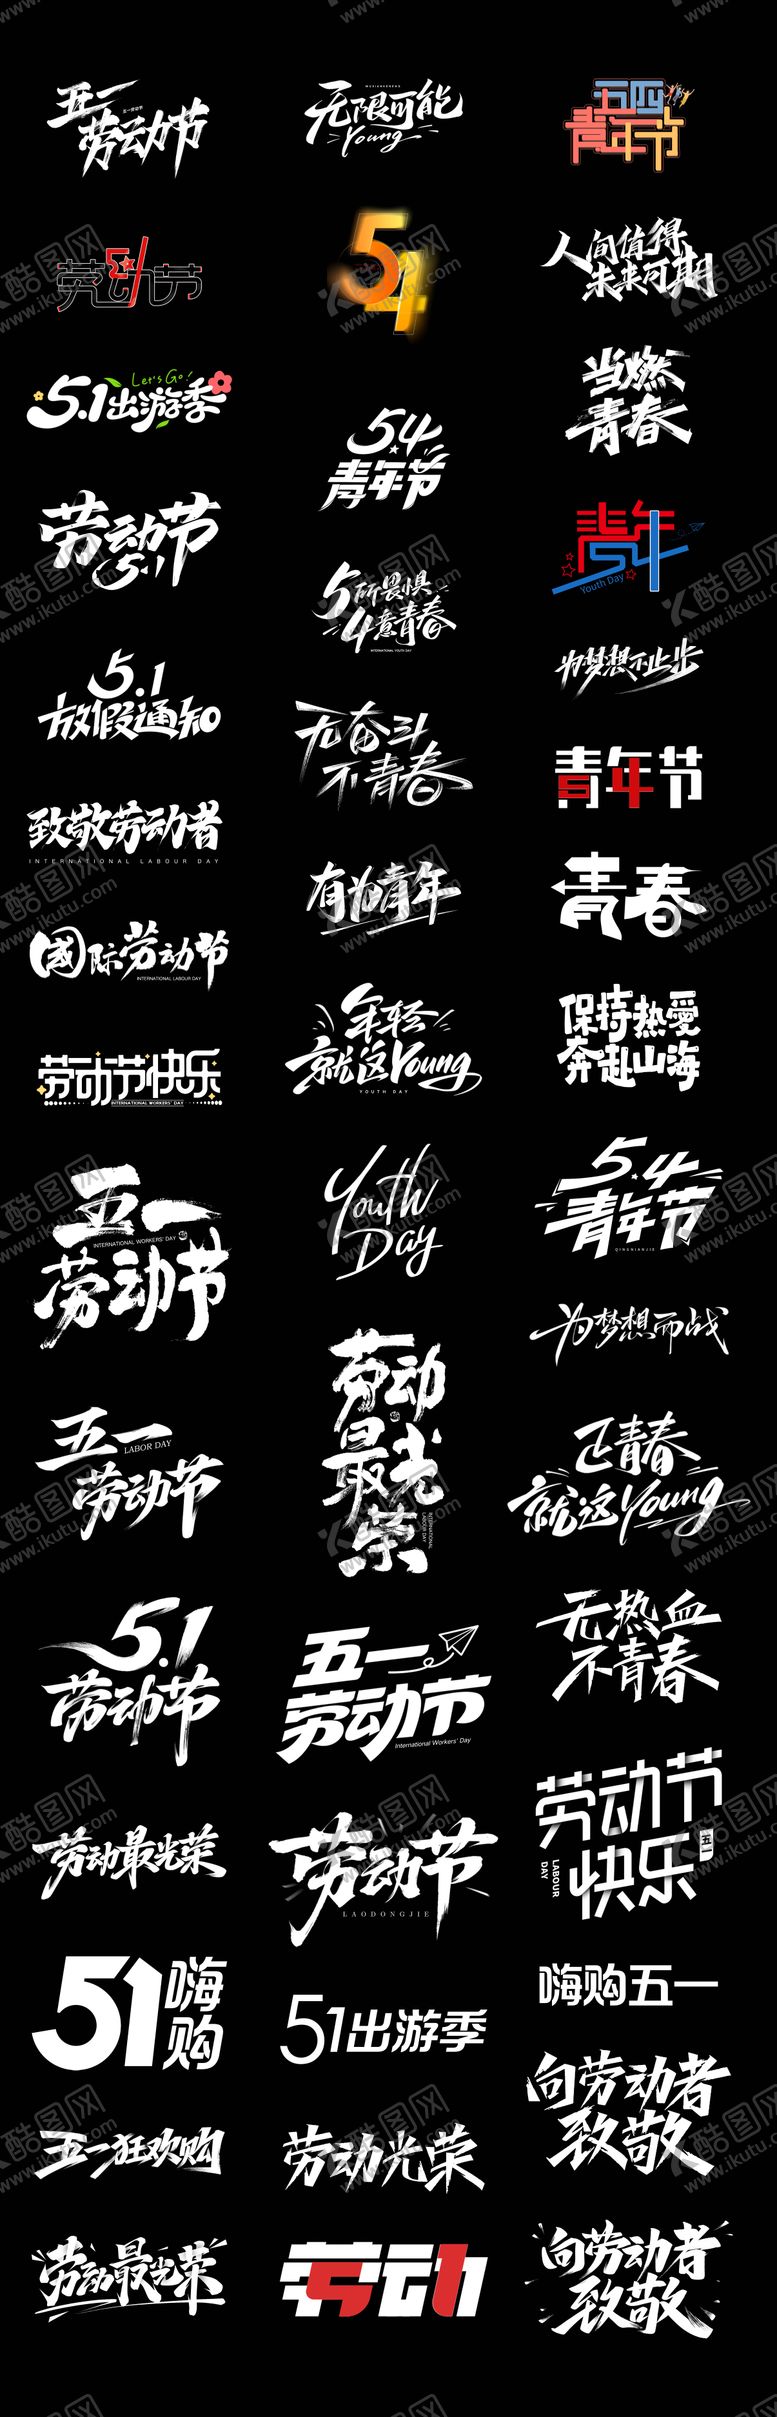 五一
五一劳动节
劳动节
无限可能
Young
五四
青年节
劳动节
51
54
人间值得
未来可期
Let's Go!
5.1出游季
5.4
青年节
当燃
青春
劳动节
5.1
5所畏惧
4意青春
INTERNATIONAL YOUTH DAY
青年
54
Youth Day
5.1
放假通知
无奋斗
不青春
为梦想不止步
致敬劳动者
INTERNATIONAL LABOUR DAY
有为青年
青年节
国际劳动节
INTERNATIONAL LABOUR DAY
年轻
就这Young
YOUTH DAY
青春
劳动节快乐
INTERNATIONAL WORKERS' DAY
Youth
Day
保持热爱
奔赴山海
五一
INTERNATIONAL WORKERS' DAY
劳动节
劳动
最光
荣
INTERNATIONAL
LABOUR DAY
5.4
青年节
QINGNIANJIE
为梦想而战
五一
LABOR DAY
劳动节
正青春
就这Young
5.1
劳动节
五一
劳动节
International Workers' Day
无热血
不青春
劳动最光荣
劳动节
LAODONGJIE
劳动节
快乐
五一
LABOUR
DAY
51嗨购
51出游季
嗨购五一
五一狂欢购
劳动光荣
向劳动者
致敬
劳动最光荣
劳动
51
向劳动者
致敬
酷图网
www.ikutu.com